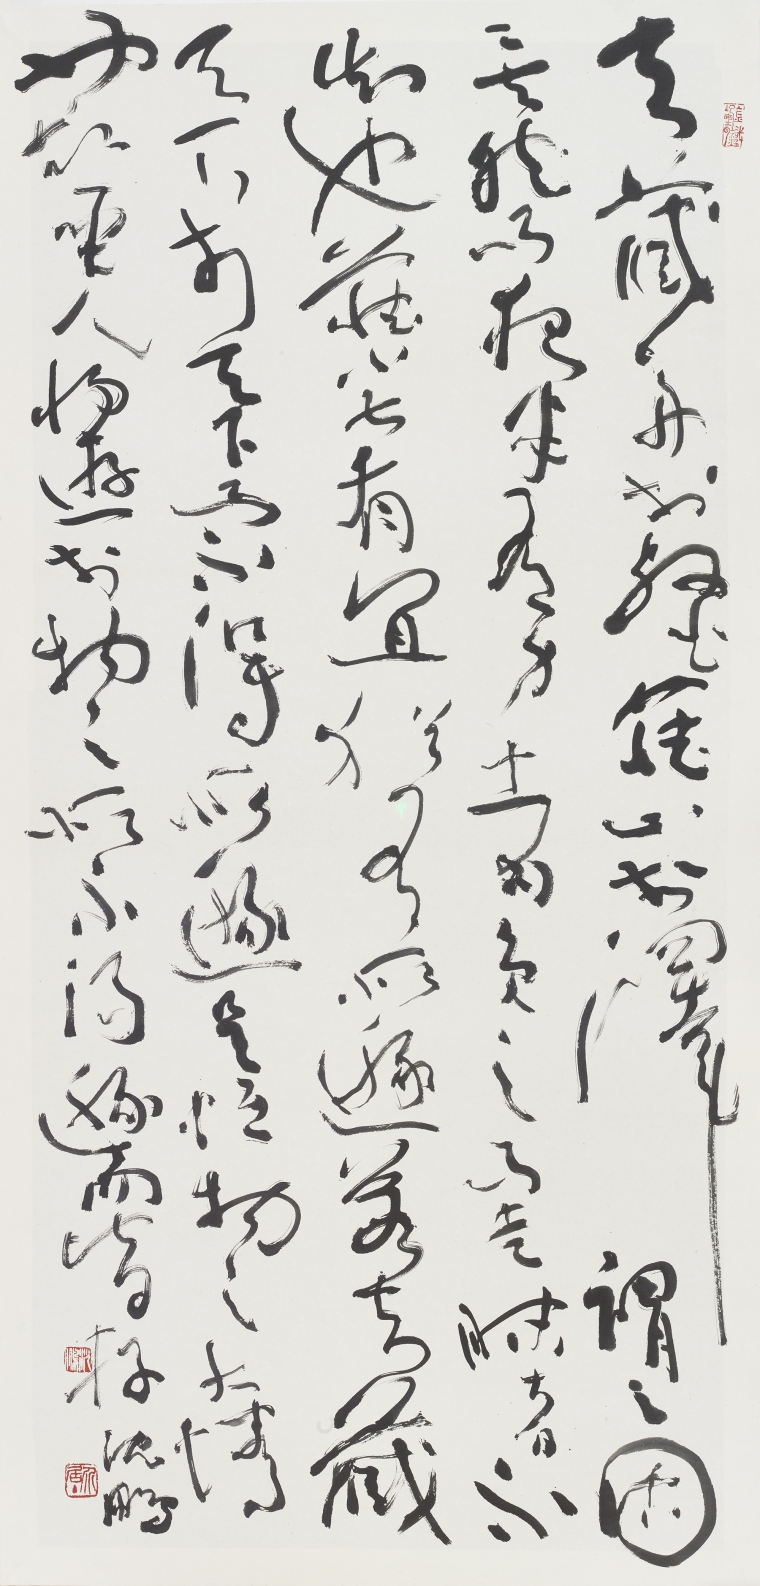 夫藏舟於壑藏山於澤謂之固
矣然而夜半有力者負之而走昧者不
知也藏小大有宜猶有所遯若夫藏
天下於天下而不得所遯是恆物之大情
也故聖人將遊於物之所不得遯而皆存
沈鵬